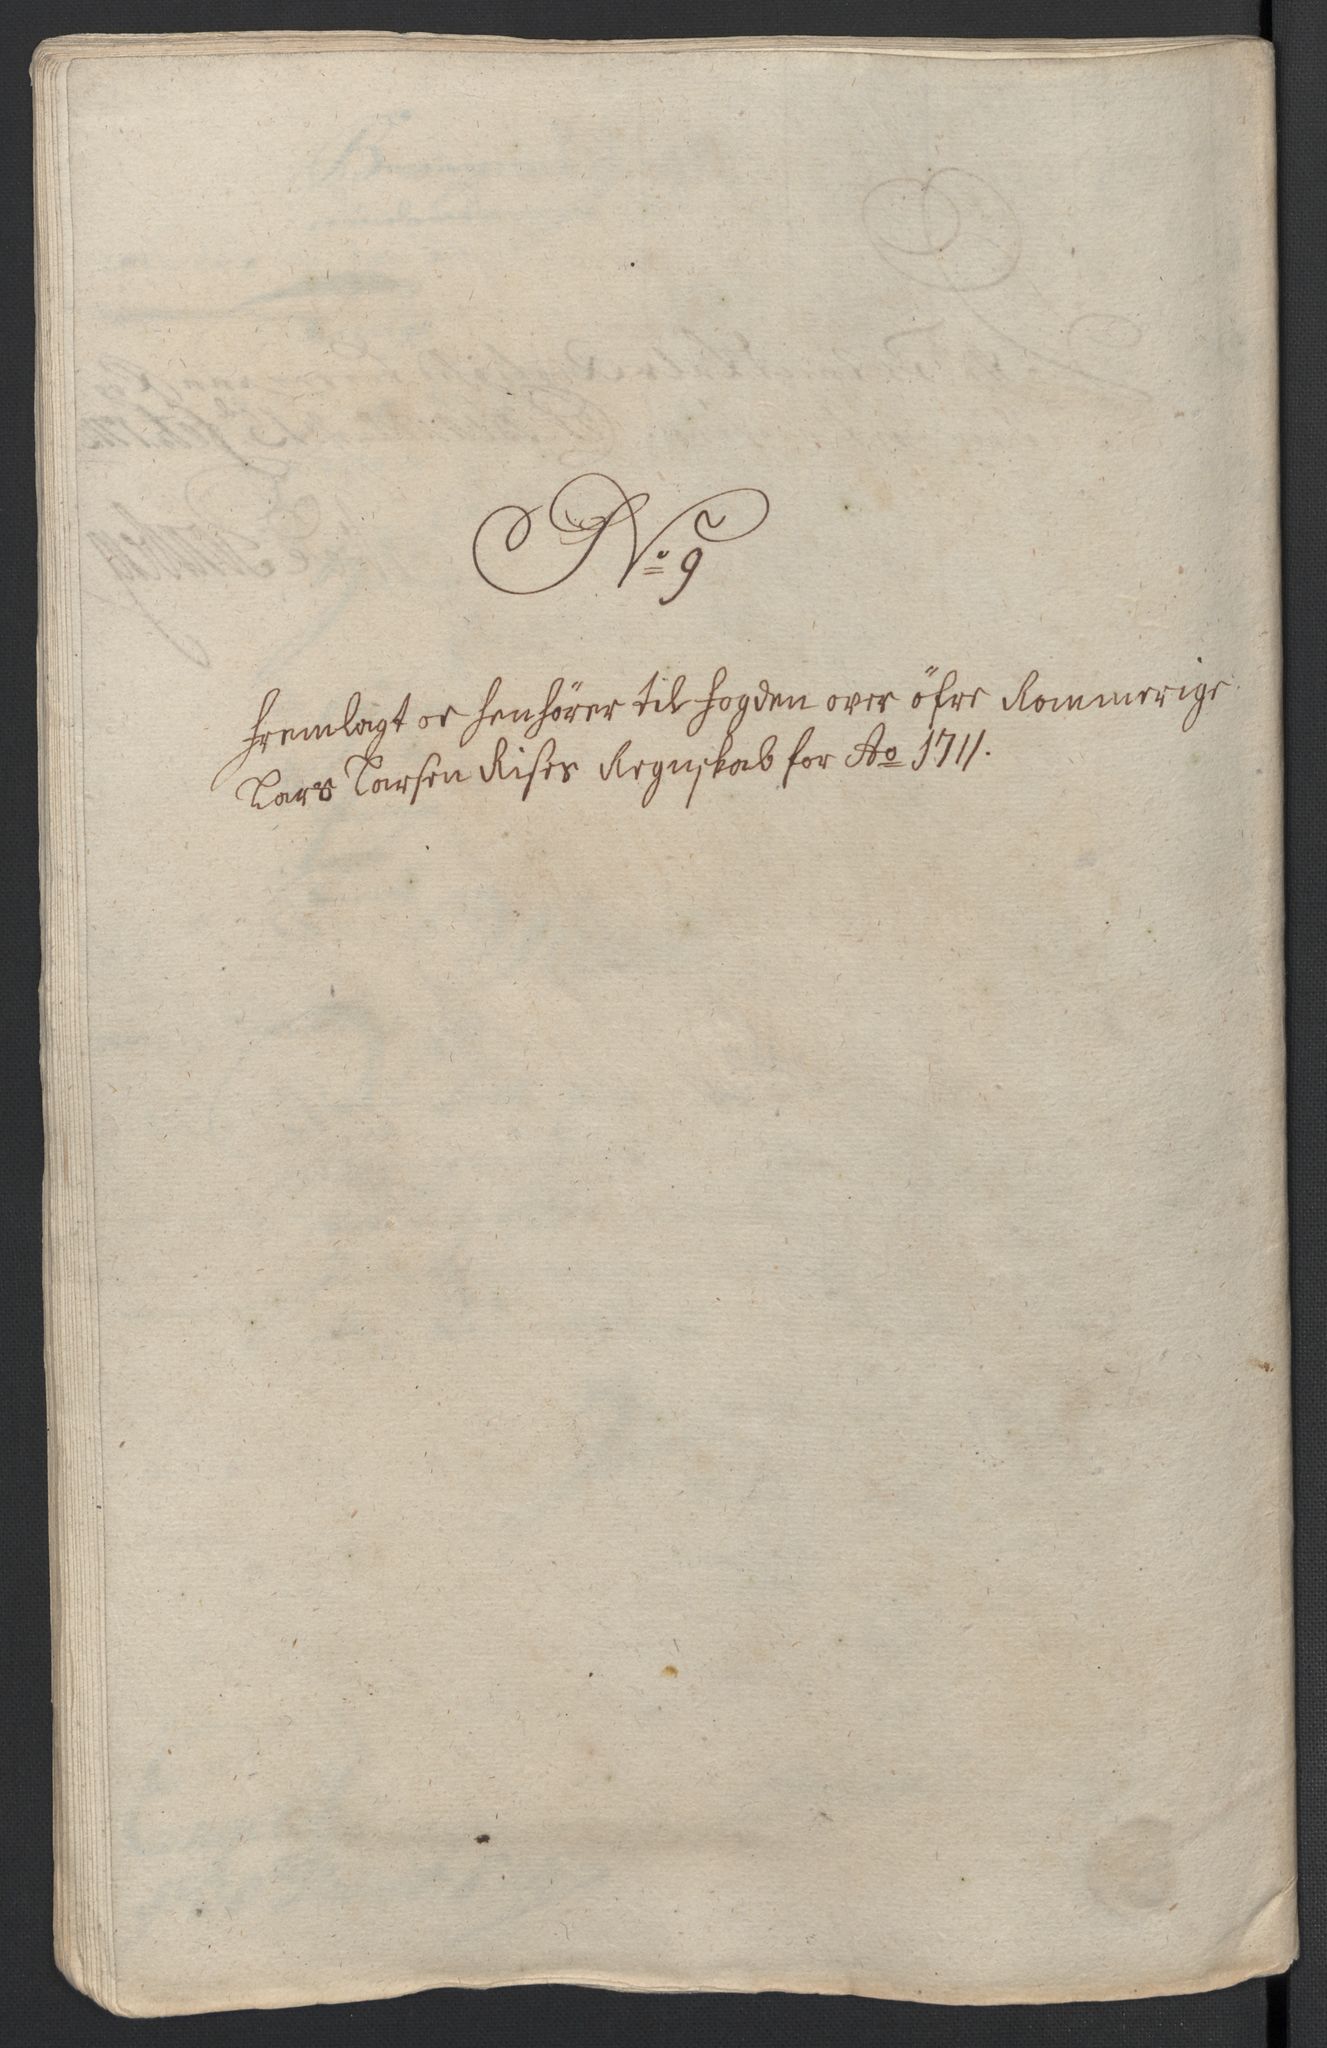 No. 9
fremlagt oc henhører til fogden over öfre Rommerige
Lars Larsen Rises Regnskab for Ao 1711.